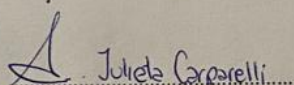 Julieta Carparelli